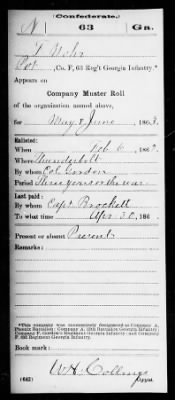 (Confederate.)
N 63 Ga.
Co. F, 63 Reg't Georgia Infantry.*
Appears on
Company Muster Roll
of the organization named above,
for May & June, 186 .
Enlisted:
When Feb 6, 186 .
Where Thunderbolt
By whom Col Gordon
Period Three years or the war
Last paid:
By whom Capt Brockett
To what time Apr 30, 186 .
Present or absent Present
Remarks:
*This company was successively designated as Company A,
Phoenix Battalion; Company A, 13th Battalion Georgia Infantry;
Company F, Gordon's Regiment Georgia Infantry; and Company
F, 63d Regiment Georgia Infantry.
Book mark:
(642) W H Collins
Copyist.